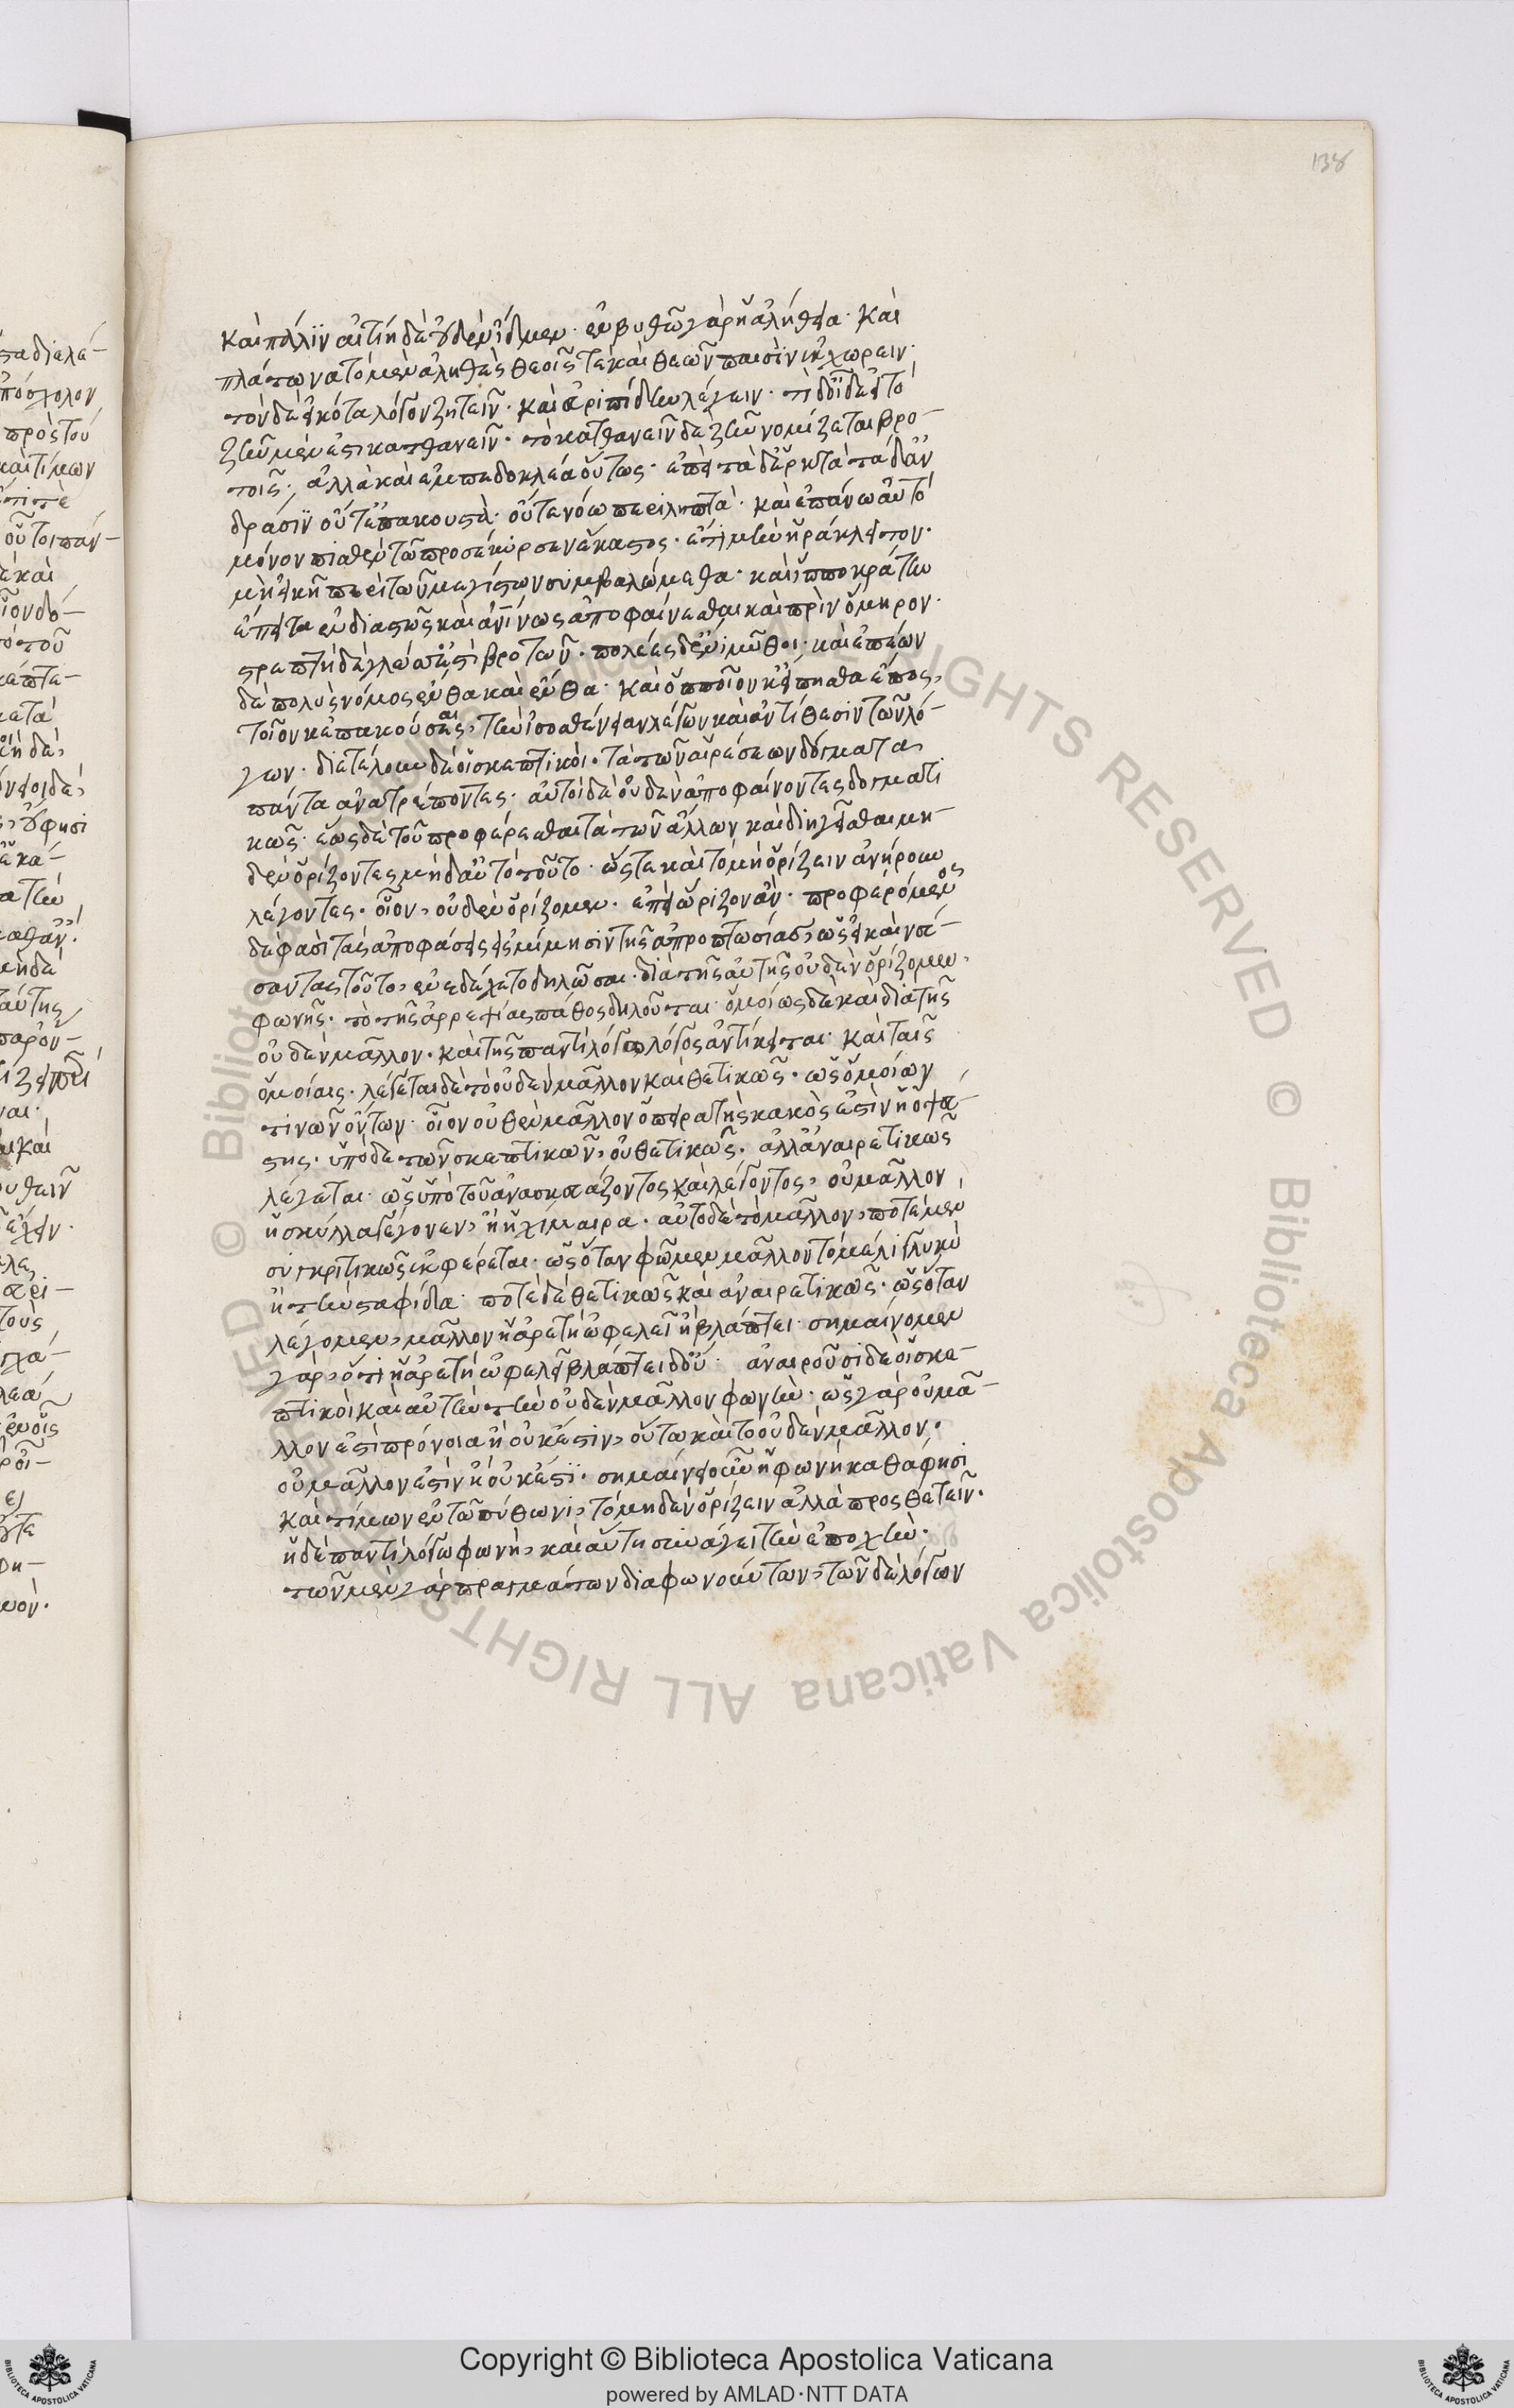 138
καὶ πάλιν αἰτίη δὲ οὐδὲν ἴδμεν· ἐν βυθῷ γὰρ ἡ ἀλήθεια· καὶ
πλάτωνα τὸ μὲν ἀληθὲς θεοῖς τε καὶ θεῶν παισὶν ἐκχωρεῖν·
τὸν δὲ εἰκότα λόγον ζητεῖν· καὶ εὐριπίδην λέγειν· τὶς δ' οἶδεν εἰ τὸ
ζῆν μέν ἐστι κατθανεῖν· τὸ κατθανεῖν δὲ ζῆν νομίζεται βρο-
τοῖς· ἀλλὰ καὶ ἐμπεδοκλέα οὕτως· ἐπιδερκτὰ τάδ' ἀν
δράσιν οὔτ' ἐπακουστὰ· οὔτε νόω περιληπτὰ· καὶ ἐπάνω αὐτὸ
μόνον πισθὲν τῶ προσέκυρσεν ἕκαστος· ἔτι μὴν ἡράκλειτον·
μὴ εἰκῆ περὶ τῶν μεγίστων συμβαλώμεθα· καὶ ἱπποκράτην
ἔπειτα ἐνδιαστῶς καὶ ἀνίνως ἀποφαίνεσθαι καὶ πρὶν ὅμηρον·
στρεπτὴ δὲ γλῶσσ' ἐστὶ βροτῶν· πολέες δ' ἔνι μῦθοι· καὶ ἐπέων
δὲ πολὺς νόμος ἔνθα καὶ ἔνθα· καὶ ὁπποῖον κ' εἴπησθα ἔπος,
τοῖον κ' ἐπακούσαις, τὴν ἰσοσθένειαν λέγων καὶ ἀντίθεσιν τῶν λό-
γων· διετέλουν δὲ οἱ σκεπτικοὶ· τὰ τῶν αἱρέσεων δόγματα
πάντα ἀνατρέποντες· αὐτοὶ δὲ οὐδὲν ἀποφαίνονται δογματι
κῶς· ἕως δὲ τοῦ προφέρεσθαι τὰ τῶν ἄλλων καὶ διηγεῖσθαι μη-
δὲν ὁρίζοντες μηδ' αὐτὸ τοῦτο· ὥστε καὶ τὸ μὴ ὁρίζειν ἀνήρουν
λέγοντες· οἷον, οὐδὲν ὁρίζομεν· ἐπεὶ ὥριζον ἂν· προφερόμενος
δέ φασι τὰς ἀποφάσεις εἰς μίμησιν τῆς ἀπροπτωσίας, ὡς εἰ καὶ νεύ-
σαντας τοῦτο, ἐνεδέχετο δηλῶσαι· διὰ τῆς αὐτῆς οὐδὲν ὁρίζομεν,
φωνῆς· τὸ τῆς ἀρρεψίας πάθος δηλοῦται· ὁμοίως δὲ καὶ διὰ τῆς
οὐδὲν μᾶλλον· καὶ τῆς παντὶ λόγω λόγος ἀντίκειται· καὶ ταῖς
ὁμοίαις· λέγεται δὲ τὸ οὐδὲν μᾶλλον καὶ θετικῶς· ὡς ὁμοίων
τινῶν ὄντων· οἷον οὐθὲν μᾶλλον ὁ πειρατὴς κακὸς ἐστὶν ἢ ὁ ψεύ-
στης· ὑπὸ δὲ τῶν σκεπτικῶν, οὐ θετικῶς· ἀλλ' ἀναιρετικῶς
λέγεται· ὡς ὑπὸ τοῦ ἀνασκευάζοντος καὶ λέγοντος, οὐ μᾶλλον
ἡ σκύλλα γέγονεν, ἢ ἡ χίμαιρα· αὐτὸ δὲ τὸ μᾶλλον, ποτὲ μὲν
συγκριτικῶς ἐκφέρεται· ὡς ὅταν φῶμεν μᾶλλον τὸ μέλι γλυκὺ
ἢ τὴν σταφίδα· ποτὲ δὲ θετικῶς καὶ ἀναιρετικῶς· ὡς ὅταν
λέγομεν, μᾶλλον ἡ ἀρετὴ ὠφελεῖ ἢ βλάπτει· σημαίνομεν
γὰρ, ὅτι ἡ ἀρετὴ ὠφελεῖ βλάπτει δ' οὔ· ἀναιροῦσι δὲ οἱ σκε-
πτικοὶ καὶ αὐτὴν τὴν οὐδὲν μᾶλλον φωνὴν· ὡς γὰρ οὐ μᾶ-
λλον ἐστὶ πρόνοια ἢ οὐκ ἔστιν, οὕτω καὶ τὸ οὐδὲν μᾶλλον·
οὐ μᾶλλον ἐστὶν ἢ οὐκ ἔστι· σημαίνει οὖν ἡ φωνὴ καθά φησι
καὶ τίμων ἐν τῶ πύθωνι, τὸ μηδὲν ὁρίζειν ἀλλὰ προσθετεῖν·
ἡ δὲ παντὶ λόγω φωνὴ, καὶ αὐτὴ συνάγει τὴν ἐποχὴν·
τῶν μὲν γὰρ πραγμάτων διαφωνούντων, τῶν δὲ λόγων
Copyright © Biblioteca Apostolica Vaticana
powered by AMLAD·NTT DATA